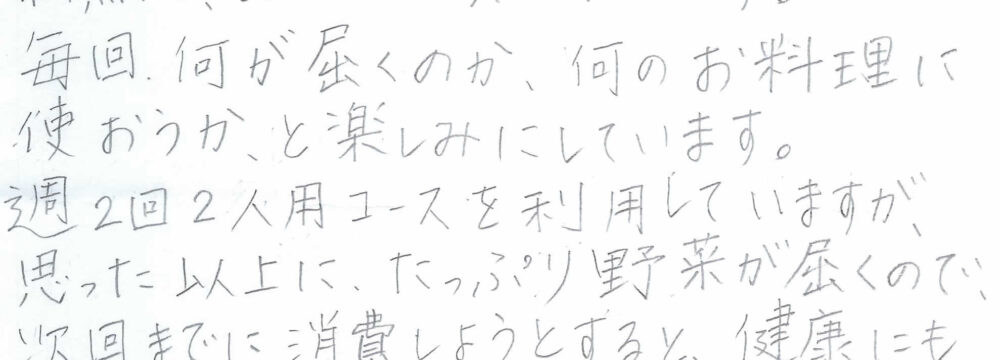 毎回、何が届くのか、何のお料理に
使おうか、と楽しみにしています。
週2回2人用コースを利用していますが、
思った以上に、たっぷり野菜が届くので、
次回までに消費しようとすると、健康にも